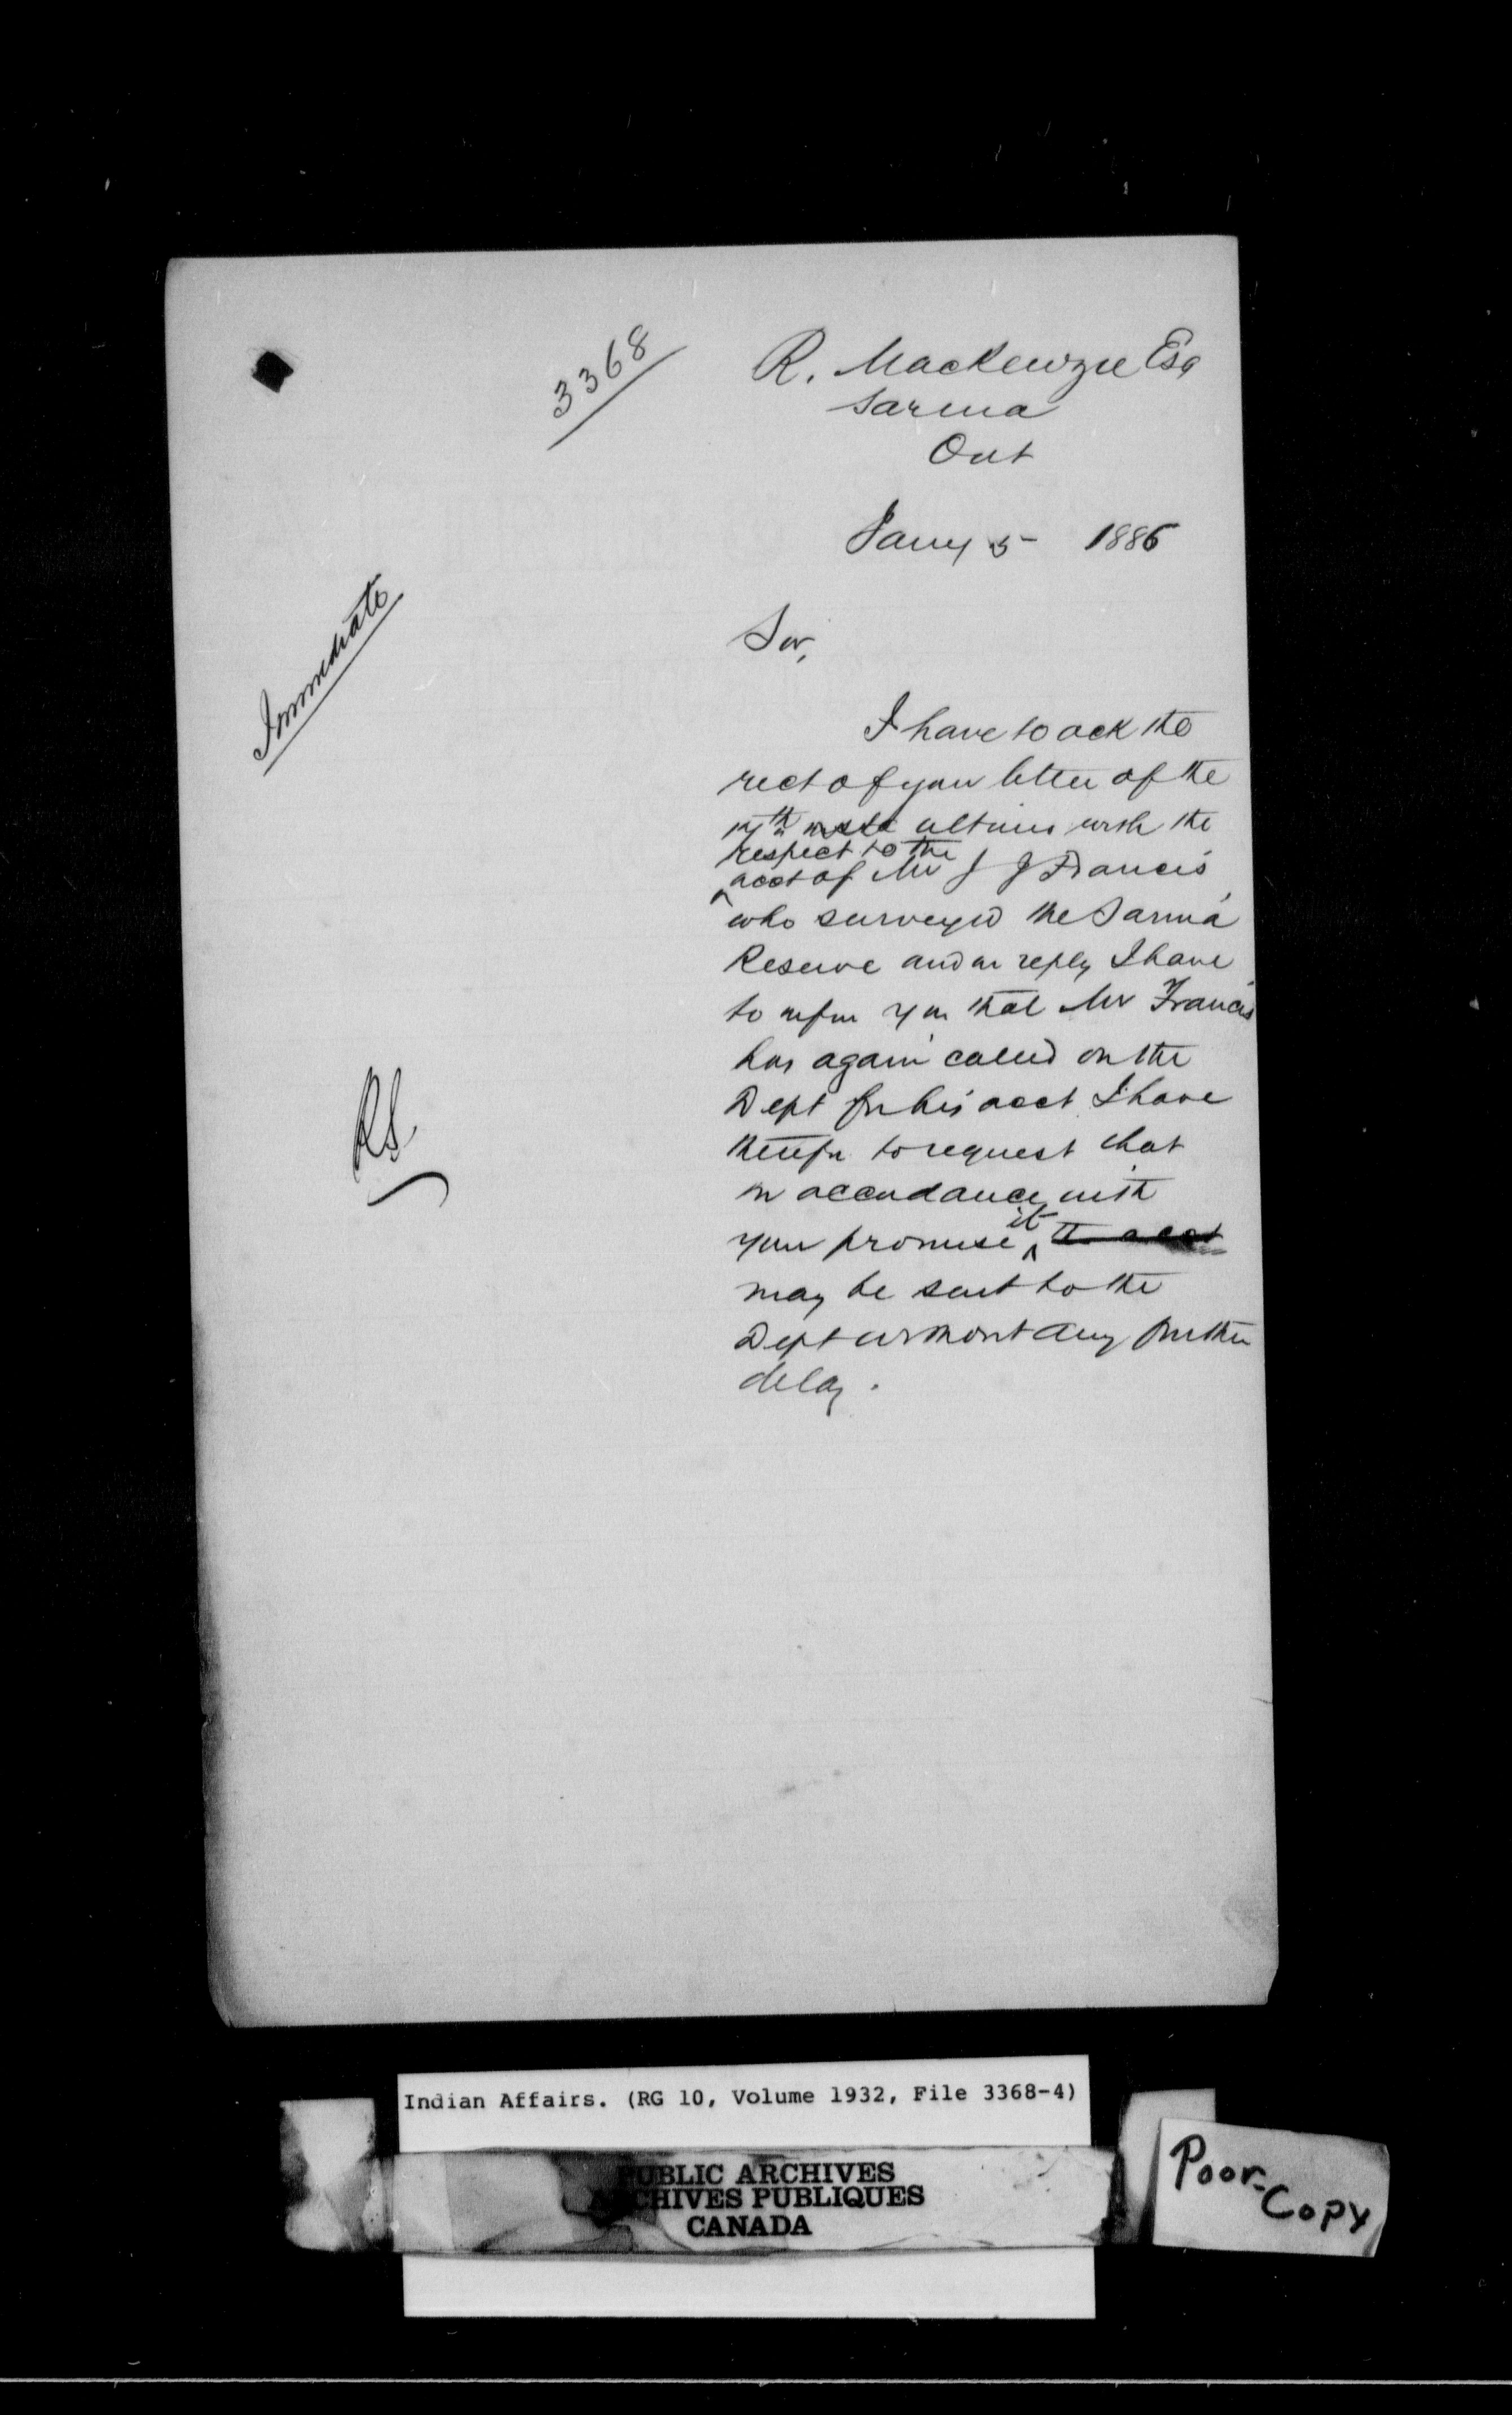 3368
R. Mackenzie Esq
Sarnia
Ont
Jany 5 - 1886
Immediate
Sir,
I have to ack the
rect of your letter of the
17th ultimo with the
respect to the
acct of Mr J J Francis
who surveyed the Sarnia
Reserve and in reply I have
to infm you that Mr Francis
has again called on the
Dept for his acct I have
therefr to request that
in accordance with
your promise it the acct
may be sent to the
Dept without any further
delay.
RS
Indian Affairs. (RG 10, Volume 1932, File 3368-4)
PUBLIC ARCHIVES
ARCHIVES PUBLIQUES
CANADA
Poor-
Copy